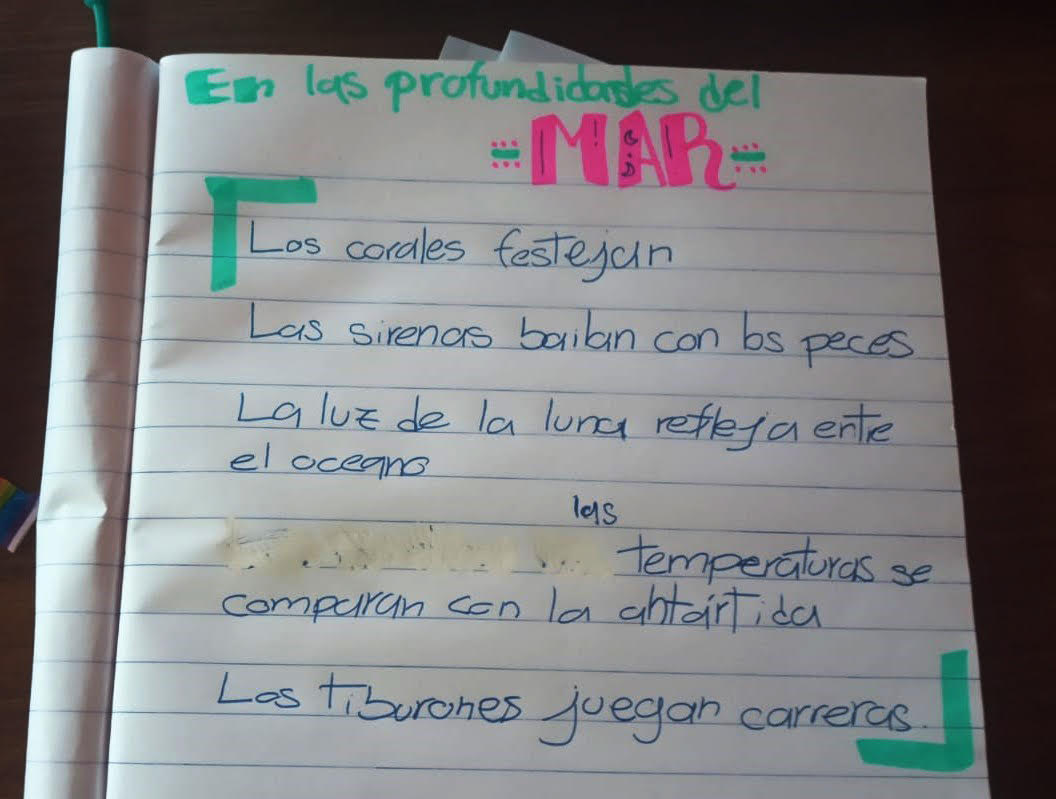 En las profundidades del
=MAR=
Los corales festejan
Las sirenas bailan con los peces
La luz de la luna refleja entre
el oceano
las
temperaturas se
comparan con la antártida
Los tiburones juegan carreras.